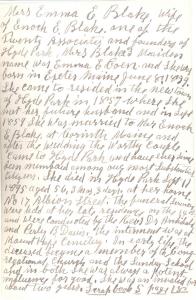 Mrs Emma E. Blake, wife
of Enoch E. Blake, one of the
County Associates and founders of
Hyde Park. Mrs Blake's Maiden
name was Emma E. and she was
born in Exeter Maine June 21, 1839.
She came to resided in the new town
of Hyde Park in 1857 where she
met her future husband and in Sept
1859 she was married to Mr Enoch
E. Blake at Corinth Maine and
after the wedding the worthy couple
came to Hyde Park and have ever since
been numbered among our most substantial
citizens. She died in Hyde Park Sept
1895 aged 56, 3 mos, days at her home
No 17 Albion Street. The funeral services
were held at her late residence on the
and were conducted by the Revs
and Perley B Davis. The interment was at
Mount Hope Cemetery. In early life the
deceased became a member of the Cong
regational church and the Sunday School
and in both she was always a potent
influence for good. She was an invalid
about two years. Scrap book 5 Page